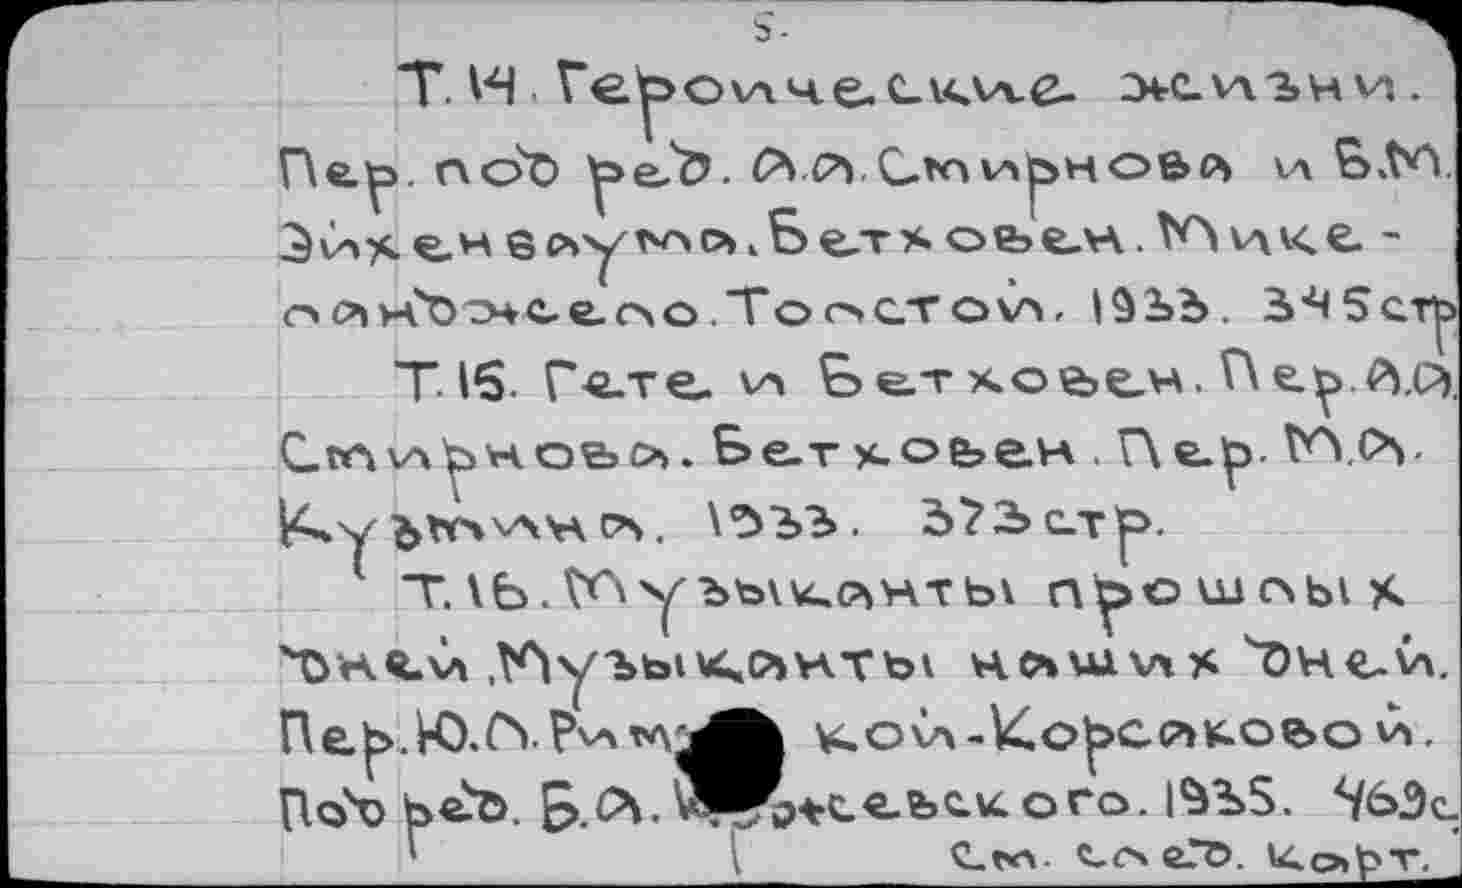 5.
Т.14. Героические жизни.
Пер. под ред. А.А.Смирнова и Б.М.
Эйхенваума. Бетховен. Мике-
ланджело. Толстой. 1933. 345стр
Т.15. Гете и Бетховен. Пер. А.А.
Смирнова. Бетховен. Пер. М.А.
Кузмина. 1933. 373стр.
Т.16. Музыканты прошлых
дней. Музыканты наших дней.
Пер. Ю.Л. Рим кой-Корсаковой.
Под ред. Б.А. жевского. 1935. 463с
См. след. карт.